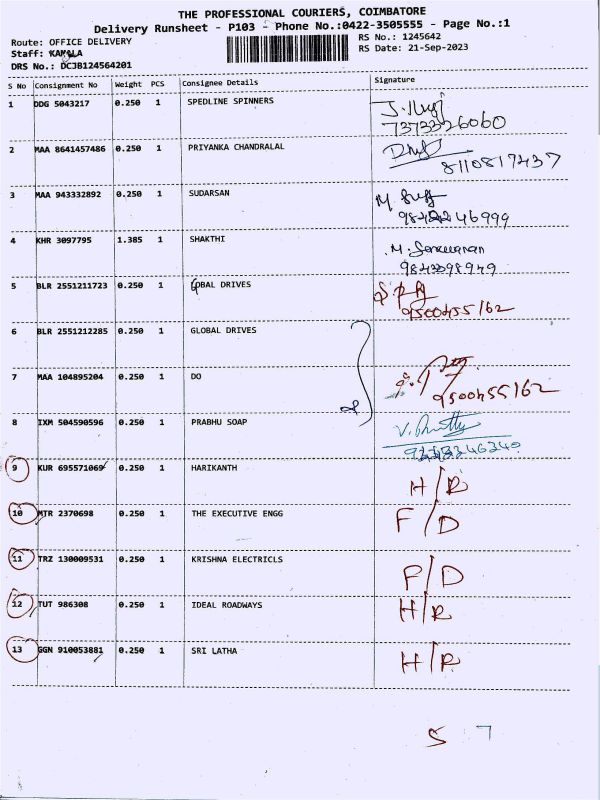 THE PROFESSIONAL COURIERS, COIMBATORE
Delivery Runsheet - P103 - Phone No.:0422-3505555 - Page No.:1
Route: OFFICE DELIVERY
RS No.: 1245642
Staff: KAMALA
RS Date: 21-Sep-2023
DRS No.: DCJB124564201
S No Consignment No Weight PCS Consignee Details Signature
1 DDG 5043217 0.250 1 SPEDLINE SPINNERS
7373326060
2 MAA 8641457486 0.250 1 PRIYANKA CHANDRALAL
8110817437
3 MAA 943332892 0.250 1 SUDARSAN
4 KHR 3097795 1.385 1 SHAKTHI
9843398949
5 BLR 2551211723 0.250 1 LOBAL DRIVES
9500455162
6 BLR 2551212285 0.250 1 GLOBAL DRIVES
7 MAA 104895204 0.250 1 DO
9500455162
8 IXM 504590596 0.250 1 PRABHU SOAP
9 KUR 695571069 0.250 1 HARIKANTH
H/R
10 MTR 2370698 0.250 1 THE EXECUTIVE ENGG
F/D
11 TRZ 130009531 0.250 1 KRISHNA ELECTRICLS
P/D
12 TUT 986308 0.250 1 IDEAL ROADWAYS
H/R
13 GGN 910053881 0.250 1 SRI LATHA
H/R
S 7